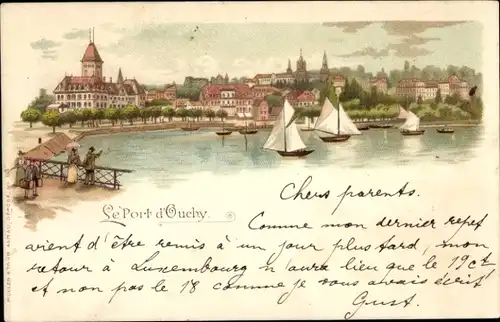 Le Port d'Ouchy.
Chers parents.
Comme mon dernier repet
avient d'être remis à un jour plus tard, mon
retour à Luxembourg n'aura lieu que le 19ct
et non pas le 18 comme je vous avais écrit
Gust.